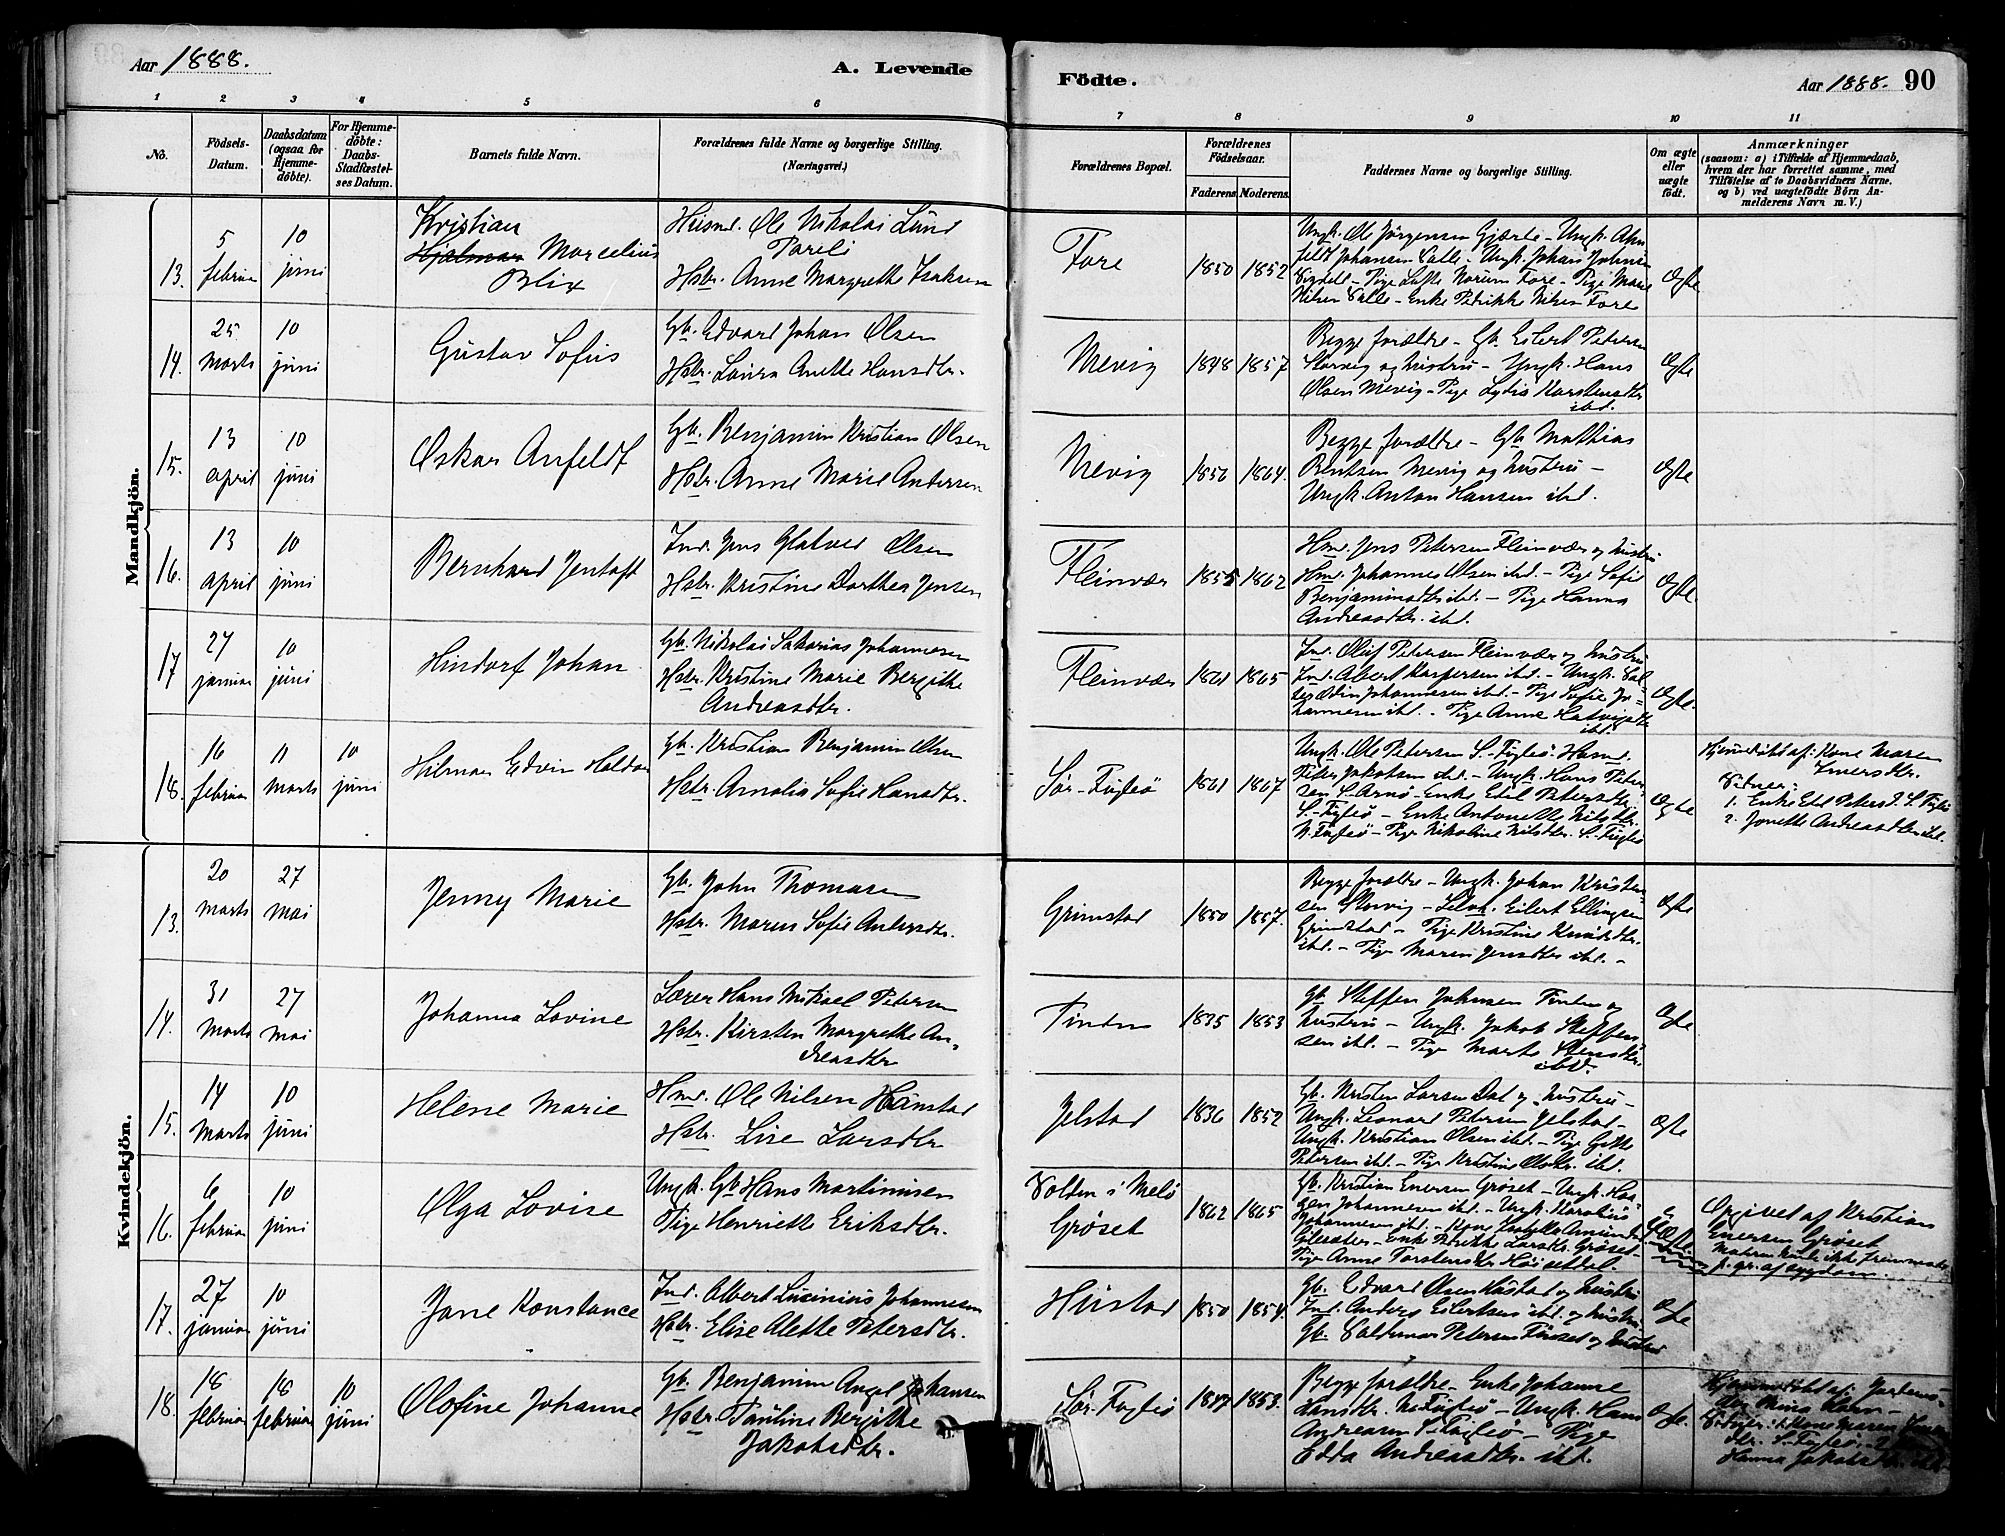 Aar 1888.
A. Levende
Födte.
Aar 1888. 90
1 2 3 4 5 6 7 8 9 10 11
No.
Födsels-
Datum.
Daabsdatum
(ogsaa for
Hjemme-
döbte).
For Hjemme-
döbte:
Daabs-
Stadfæstel-
ses Datum.
Barnets fulde Navn.
Forældrenes fulde Navne og borgerlige Stilling.
(Næringsvei.)
Forældrenes Bopæl.
Forældrenes
Födselsaar.
Faderens Moderens
Faddernes Navne og borgerlige Stilling.
Om ægte
eller
uægte
födt.
Anmærkninger
(saasom: a) i Tilfælde af Hjemmedaab,
hvem der har forrettet samme, med
Tilföielse af to Daabsvidners Navne,
og b) ved uægtefödte Börn An-
melderens Navn m. V.)
Mandkjön.
13. 5 februar 10 juni
Kristian
Hjalmar Marcelius
Blix
Husmd. Ole Nikolai Lund
Hstr. Anne Margrethe Isaksen
Fore 1850 1852
Ungk. Ole Jörgensen Gjærde - Ungk.
Johansen Valle - Ungk. Johan
Pige Norum Fore - Pige Marie
Nilsen Valle - Enke Petrikke Nilsen Fore
Ægte
14. 25 marts 10 juni
Gustav Sofus
Gb. Edvard Johan Olsen
Hstr. Laura Anette Hansdtr.
Mevig 1848 1857
Begge forældre - Gb. Eilert Petersen
Storvig og hustru - Ungk. Hans
Olsen Mevig - Pige Lydia Karstensdtr
ibd.
Ægte
15. 13 april 10 juni
Oskar Anfeldt
Gb. Benjamin Kristian Olsen
Hstr. Anne Marie Andersen
Mevig 1856 1864.
Begge forældre - Gb. Mathias
Bentsen Mevig og hustru -
Ungk. Anton Hansen ibd.
Ægte
16. 13 april 10 juni
Bernhard Jentoft
Ind. Jens Glatved Olsen
Hstr. Kristine Dorthea Jensen
Fleinvær 1855 1862
Hmd. Jens Petersen Fleinvær og hustru
Hmd. Johannes Olsen ibd. - Pige Sofie
Benjaminsdtr ibd. - Pige Hanna
Andreasdtr. ibd.
Ægte.
17 27 januar 10 juni
Hindorf Johan
Gb. Nikolai Sakarias Johannesen
Hstr. Kristine Marie Bergithe
Andreasdtr.
Fleinvær 1861 1865
Ind. Oluf Petersen Fleinvær og hustru
Ind. Albert Kaspersen ibd. - Ungk.
Johannesen ibd. - Pige Sofie Jo-
hannesen ibd. - Pige Anne
ibd.
Ægte.
18. 16 februar 11 marts 10 juni
Hilmar Edvin Haldor
Gb. Kristian Benjamin Olsen
Hstr. Amalia Sofie Hansdtr.
Sör-Fugleö 1861 1867
Ungk. Ole Petersen S-Fugleö.
Peter Jakobsen ibd. - Ungk. Hans Peter-
sen S-Arnö - Enke Edel Petersdtr.
S-Fugleö - Enke Antonette Nilsdtr.
N. Fugleö - Pige Nikoline Nilsdtr. S-Fugleö
Ægte
Hjemmedöbt af: Kone Maren
Ingersdtr.
Vidner:
1. Enke Edel Petersd. S. Fugleö
2. Jonette Andreasdtr ibd.
Kvindekjön.
13. 20 marts 27 mai
Jenny Marie
Gb. John Thomasen
Hstr. Maren Sofie Andersdtr.
Grimstad 1850 1857.
Begge forældre - Ungk. Johan Kristen-
sen Storvig - Eilert Ellingsen
Grimstad - Pige Kristine Knudsdtr.
ibd. - Pige Maren Jensdtr ibd. -
Ægte
14. 31 marts 27 mai
Johanna Lovine
Lærer Hans Mikael Petersen
Hstr. Kirsten Margrethe An-
dreasdtr
Finden 1835 1853
Gb. Steffen Johnsen Finden og
hustru - Ungk. Jakob Steffen-
sen ibd. - Pige Marte
ibd.
Ægte
15. 14 marts 10 juni
Helene Marie
Hmd. Ole Nilsen
Hstr. Lise Larsdtr
Jelstad 1836 1852
Gb. Kristen Larsen Dal og hustru -
Ungk. Leonard Petersen Jelstad -
Ungk. Kristian Olsen ibd. - Pige
Petersen ibd. - Pige Kristine Olsdtr. ibd.
Ægte
16. 6 februar 10 juni
Olga Lovise
Ungk. Gb. Hans Martinusen
Pige Henriette Eriksdtr.
Volden i Melö
Gröset
1862 1865
Gb. Kristian Enersen Gröset - Ungk.
Johannesen ibd. - Ungk. Karolius
Johannesen ibd. - Kone
Enke Larsdtr. Gröset -
Pige Anne Torstensdtr
Uægte
Opgivet af Kristian
Enersen Gröset
Moderen kunde ikke fremmöde
p. gr. af sygdom.
17. 27 januar 10 juni
Jane Konstance
Ind. Albert Lucinius Johannesen
Hstr. Elise Alette Petersdtr.
Hustad 1850 1854.
Gb. Edvard Olsen Hustad og hustru
Ind. Anders Eilertsen ibd. og hustru
Gb. Valdemar Petersen og hustru
Ægte
18. 18 februar 18 februar 10 juni
Olofine Johanne
Gb. Benjamin Angel Johansen
Hstr. Pauline Bergithe
Jakobsdtr.
Sör-Fugleö 1849 1853.
Begge forældre - Enke Johanne
Hansdtr. N. Fugleö - Ungk. Hans
Andreasen S-Fugleö - Pige
Edda Andreasdtr. ibd.
Ægte.
Hjemmedöbt af: Jordemo-
der
Vidner: 1. Kone Maren
dtr. S-Fugleö
Hanna Jakobsd. ibd.